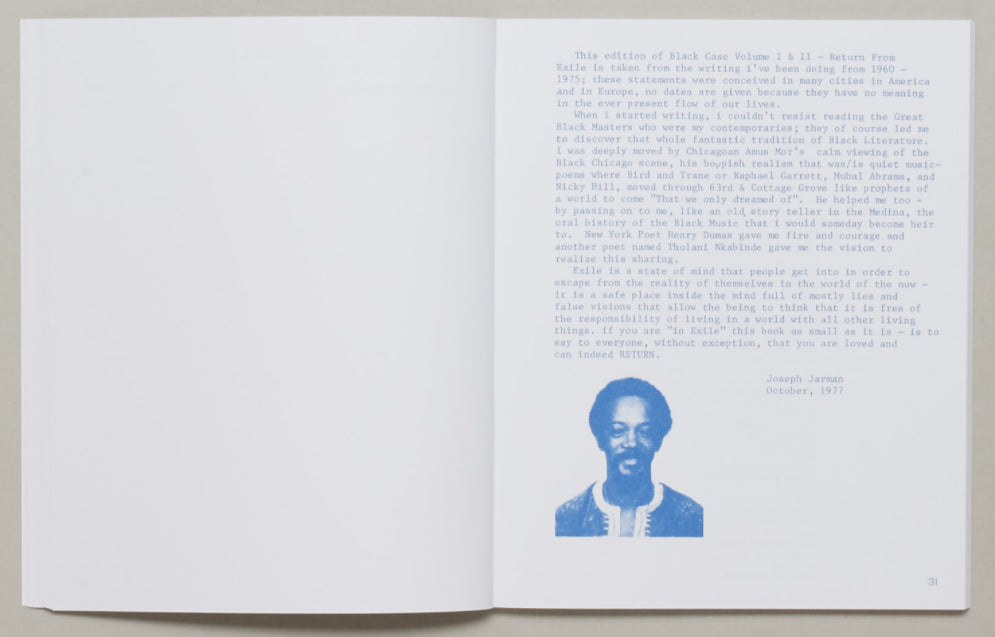 This edition of Black Case Volume I & II - Return From
Exile is taken from the writing i've been doing from 1960 -
1975; these statements were conceived in many cities in America
and in Europe, no dates are given because they have no meaning
in the ever present flow of our lives.
When i started writing, i couldn't resist reading the Great
Black Masters who were my contemporaries; they of course led me
to discover that whole fantastic tradition of Black Literature.
I was deeply moved by Chicagoan Amus Mor's calm viewing of the
Black Chicago scene, his boppish realism that was/is quiet music-
poems where Bird and Trane or Raphael Garrett, Muhal Abrams, and
Nicky Hill, moved through 63rd & Cottage Grove like prophets of
a world to come "That we only dreamed of". He helped me too -
by passing on to me, like an old story teller in the Medina, the
oral history of the Black Music that i would someday become heir
to. New York Poet Henry Dumas gave me fire and courage and
another poet named Thulani Nkabinde gave me the vision to
realize this sharing.
Exile is a state of mind that people get into in order to
escape from the reality of themselves in the world of the now -
it is a safe place inside the mind full of mostly lies and
false visions that allow the being to think that it is free of
the responsibility of living in a world with all other living
things. if you are "in Exile" this book as small as it is - is to
say to everyone, without exception, that you are loved and
can indeed RETURN.
Joseph Jarman
October, 1977
31